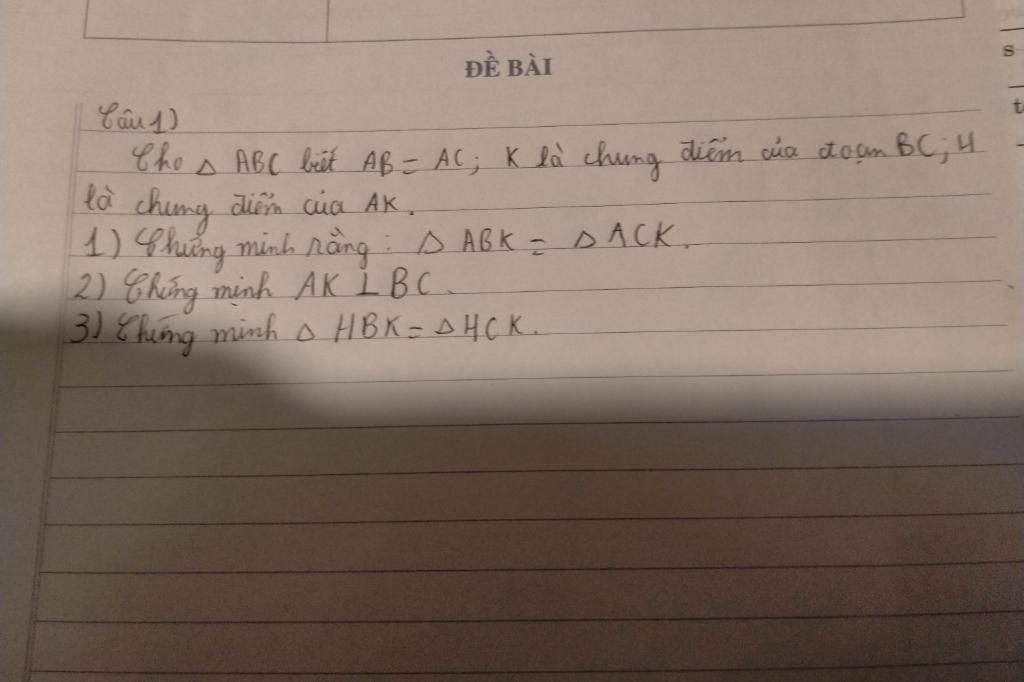 ĐỀ BÀI
Câu 1)
Cho △ ABC biết AB = AC; K là chung điểm của đoạn BC; H
là chung điểm của AK.
1) Chứng minh rằng: △ ABK = △ ACK.
2) Chứng mịnh AK ⊥ BC.
3) Chứng minh △ HBK = △ HCK.
s